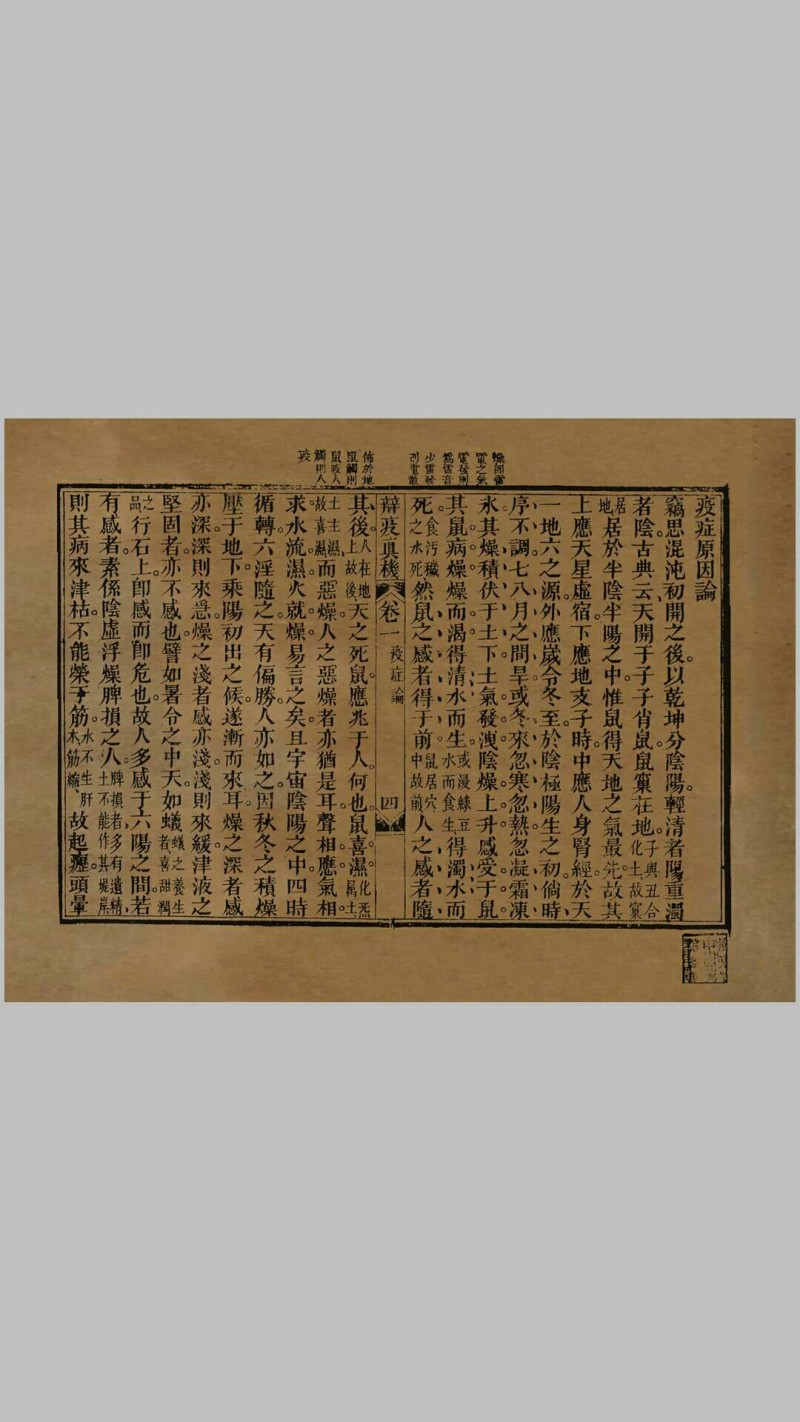 疫症原因論
竊思混沌初開之後。以乾坤分陰陽。輕清者陽。重濁
者陰。古典云。天開于子。子肖鼠。鼠窠在地。子與丑合化土故窠
居地居於半陰半陽之中。惟鼠得天地之氣最先。故其
上應天星虛宿。下應地支子時。中應人身腎經。於天
一地六之源。外應歲令冬至。於陰極陽生之初。倘時
序不調。七八月之間旱。或冬來忽寒忽熱。忽凝霜凍
永。其燥積伏于土下。土氣發洩。陰燥上升。感受于鼠。
其鼠病燥。燥而渴。得清水而生。或浸綠豆水而食生得濁水而
死。食污穢之水死然鼠之感者得于前。鼠居穴中故前人之感者隨
辯疫真機 卷一 疫症論 四
其後。人在地上故後天之死鼠。應兆于人。何也。鼠喜濕。化炁屬土
土主濕故喜濕而惡燥。人之惡燥者。亦猶是耳。聲相應。氣相
求。水流濕。火就燥。易言之矣。且宇宙陰陽之中。四時
循轉。六淫隨之。天有偏勝。人亦如之。因秋冬之積燥
壓于地下。乘陽初出之候。遂漸而來耳。燥之深者感
亦深。深則來急。燥之淺者感亦淺。淺則來緩。津液之
堅固者。亦不感也。譬如暑令之中。天如蟻蟻之養生者喜甜潤
之品行石上。卽感而卽危也。故人多感于六陽之間。若
有感者。素係陰虛浮燥脾損之人。脾損者多有遺精土不能作其堤岸
則其病來津枯。不能榮于筋。水不生肝木筋縮故起癧。頭暈
燥卽雷
電之氣
電發則
爲雷音
少雷發
佈於地
鼠觸則
鼠疫人
觸則人
疫